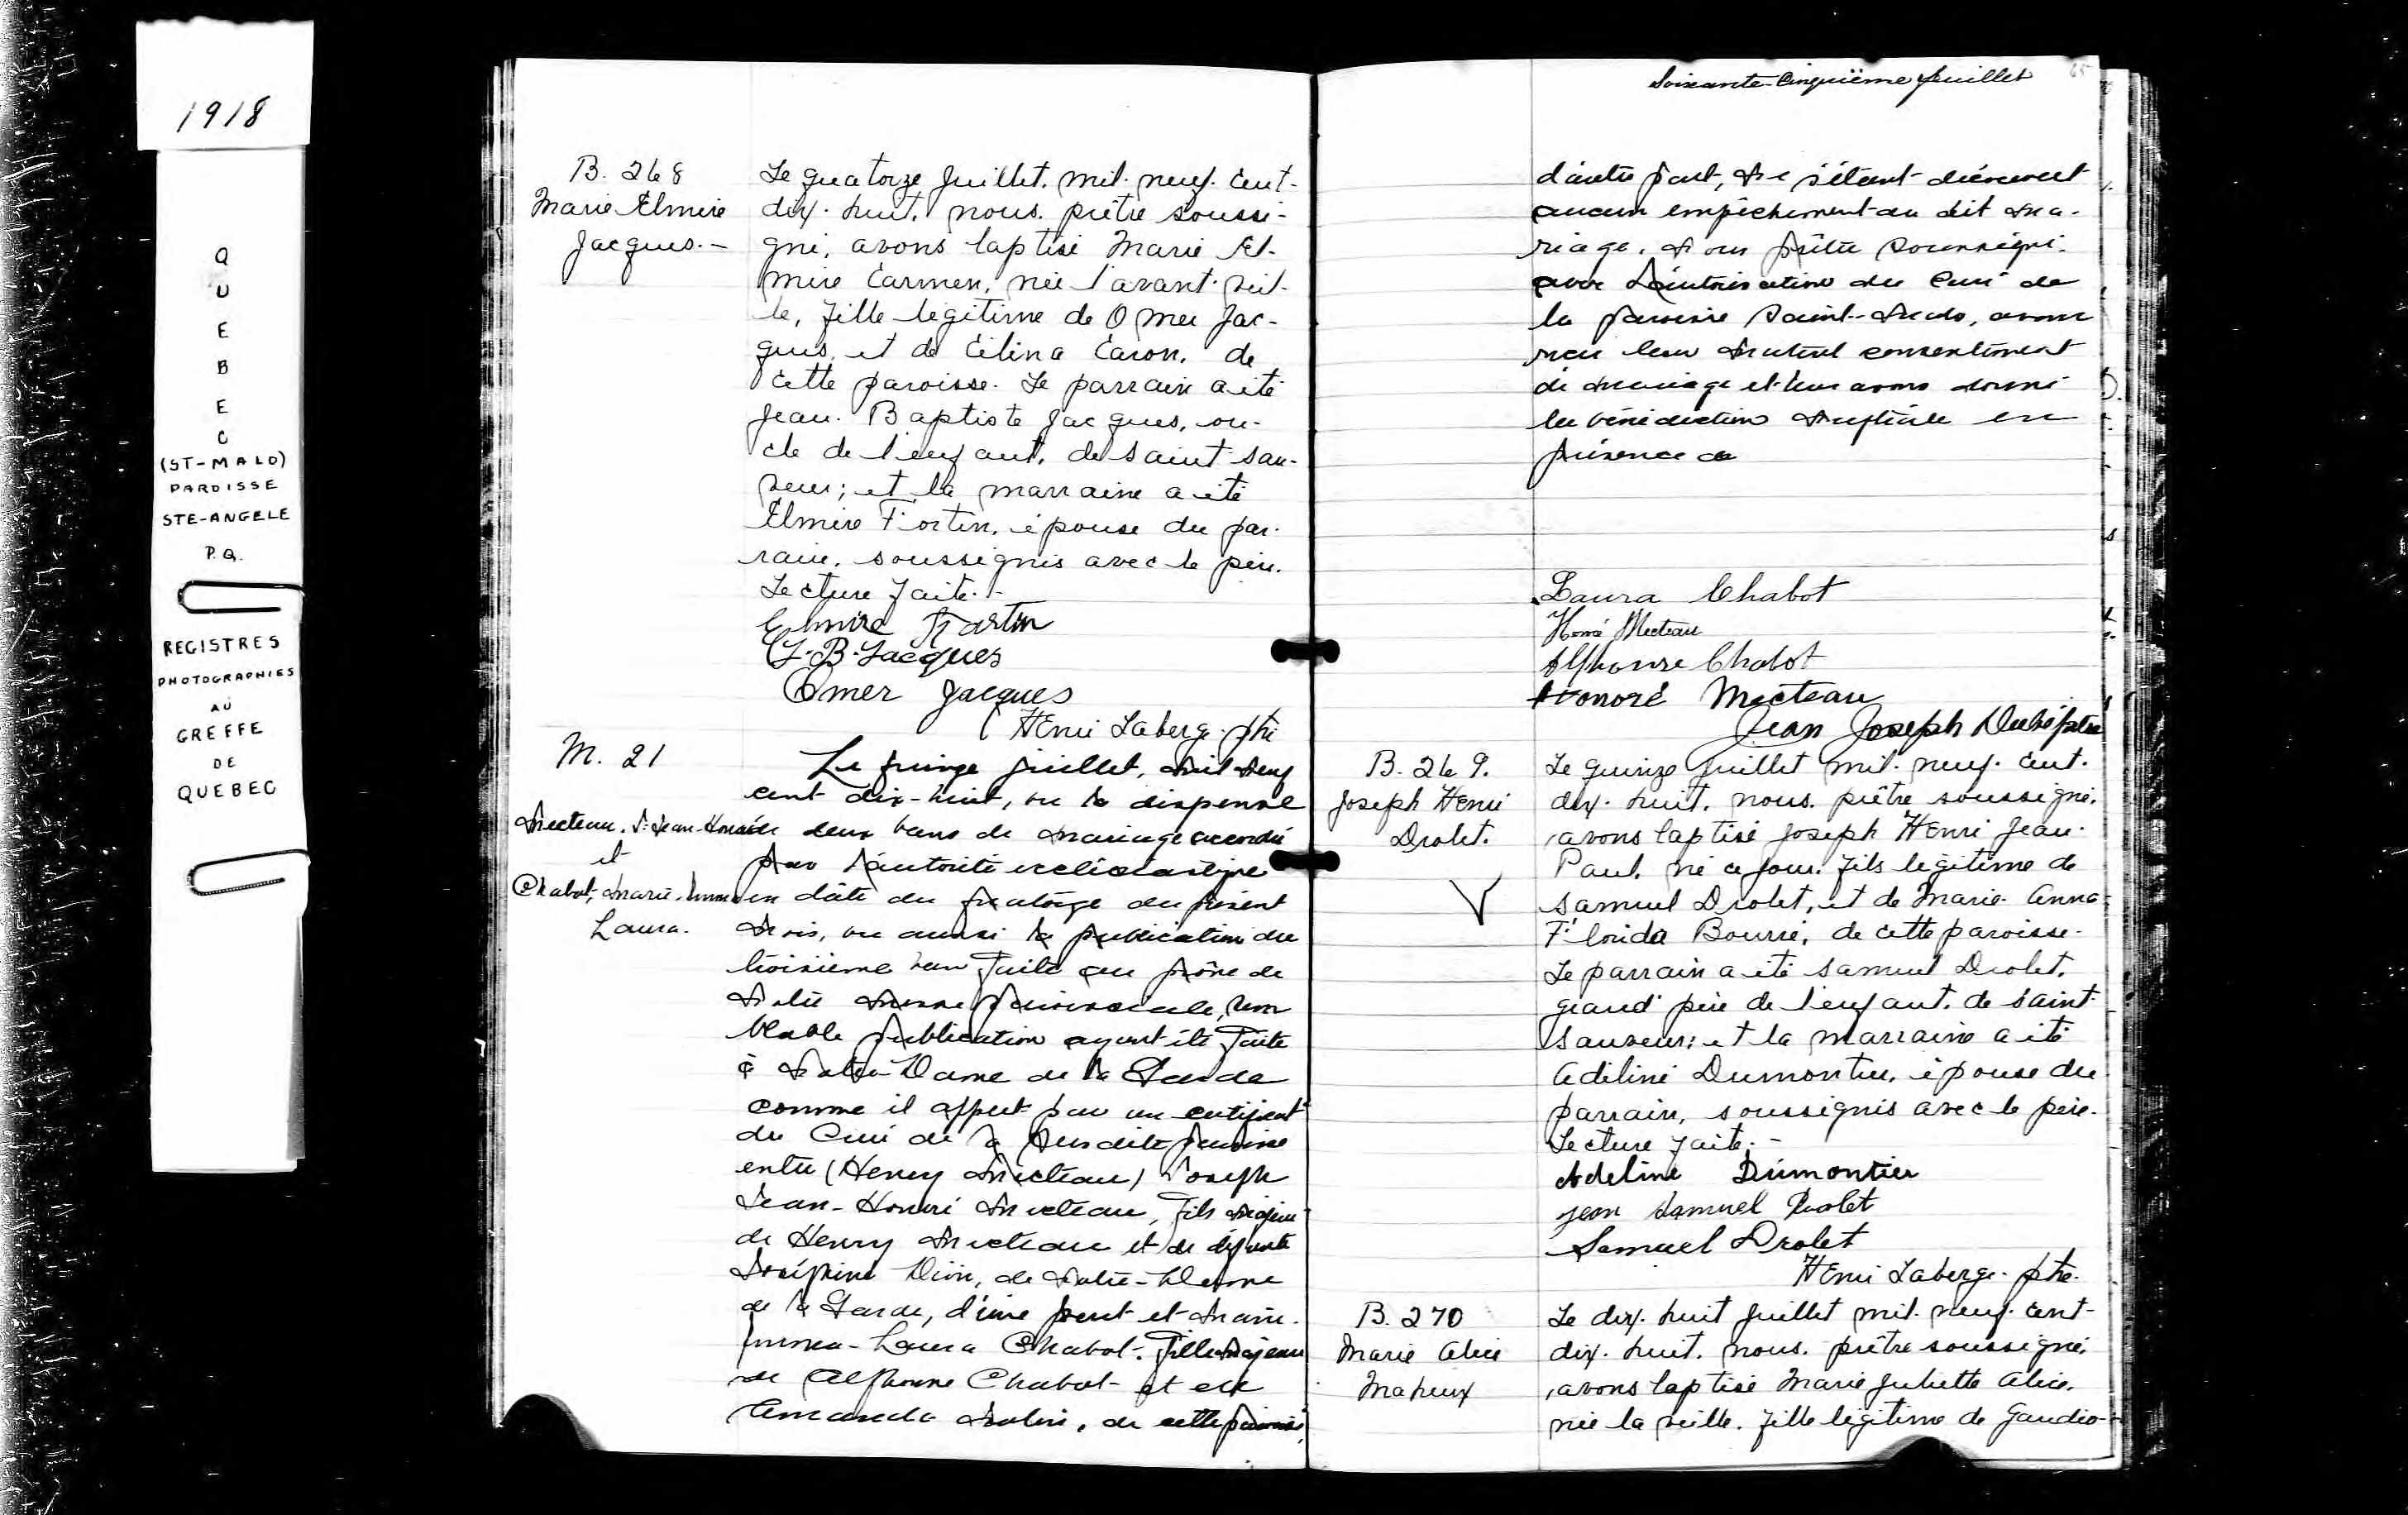 1918
QUEBEC
(ST-MALO)
PAROISSE
STE-ANGELE
P.Q.
REGISTRES
PHOTOGRAPHIES
AU
GREFFE
DE
QUEBEC
B. 268
Marie Elmire
Jacques.-
Le quatorze juillet, mil. neuf. cent-
dix. huit, nous. prêtre soussi-
gné, avons baptisé Marie El-
mire Carmen, née l'avant. veil-
le, fille légitime de Omer Jac-
ques, et de Célina Caron, de
cette paroisse. Le parrain a été
Jean. Baptiste Jacques, on-
cle de l'enfant, de Saint Sau-
veur; et la marraine a été
Elmire Fortin, épouse du par-
rain, soussignés avec le père.
Lecture faite.-
Elmire Fortin
J.-B. Jacques
Omer Jacques
Henri Laberge. ptre
M. 21
Mecteau, Js-Jean-Honoré
et
Chabot, Marie-Emma
Laura.
Le quinze juillet, mil neuf
cent dix-huit, vu la dispense
de deux bans de mariage accordée
par l'autorité ecclésiastique
en date du quatorze du présent
mois, vu aussi la publication du
troisième ban faite au prône de
notre messe paroissiale, sem
blable publication ayant été faite
à Notre-Dame de la Garde
comme il appert par un certificat
du Curé de la susdite paroisse
entre (Henry Mecteau) Joseph
Jean-Honoré Mecteau, fils majeur
de Henry Mecteau et de défunte
Joséphine Dion, de Notre-Dame
de la Garde, d'une part et Marie-
Emma-Laura Chabot. fille majeure
de Alphonse Chabot et de
Amanda Nolin, de cette paroisse,
Soixante-cinquième feuillet
65
d'autre part, ne s'étant découvert
aucun empêchement au dit ma-
riage. Nous prêtre soussigné.
avec l'autorisation du Curé de
la paroisse Saint-Malo, avons
reçu leur mutuel consentement
de mariage et leur avons donné
la bénédiction nuptiale en
présence de
Laura Chabot
Honoré Mecteau
Alphonse Chabot
Honoré Mecteau
Jean Joseph Dubé ptre
B. 269.
Joseph Henri
Drolet.
V
Le quinze juillet mil. neuf. cent.
dix. huit, nous. prêtre soussigné,
avons baptisé Joseph Henri Jean-
Paul, né ce jour. fils légitime de
Samuel Drolet, et de Marie. Anna-
Florida Bourré, de cette paroisse.
Le parrain a été Samuel Drolet,
grand père de l'enfant, de Saint-
Sauveur; et la marraine a été
Adéline Dumontier, épouse du
parrain, soussignés avec le père.
Lecture faite.-
Adeline Dumontier
Jean Samuel Drolet
Samuel Drolet
Henri Laberge. ptre.
B. 270
Marie Alice
Maheux
Le dix. huit juillet mil. neuf. cent-
dix. huit, nous. prêtre soussigné,
avons baptisé Marie Juliette Alice,
née la veille. fille légitime de Gaudio-